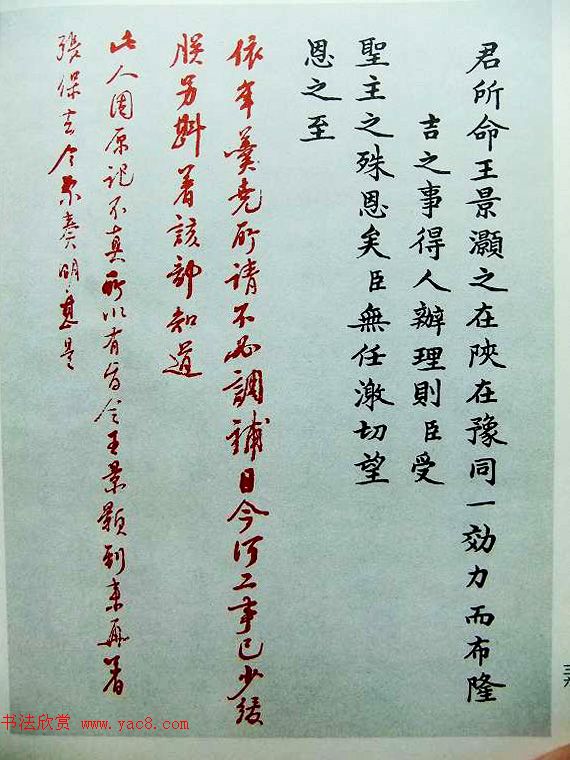 君所命王景灝之在陝在豫同一効力而布隆
吉之事得人辦理則臣受
聖主之殊恩矣臣無任激切望
恩之至
依年羹堯所請不必調補目今河工事已少緩
朕另斟著該部知道
此人因原記不真所以有旨令王景顥到來再著
張保去今覽奏明甚是
书法欣赏 www.yac8.com